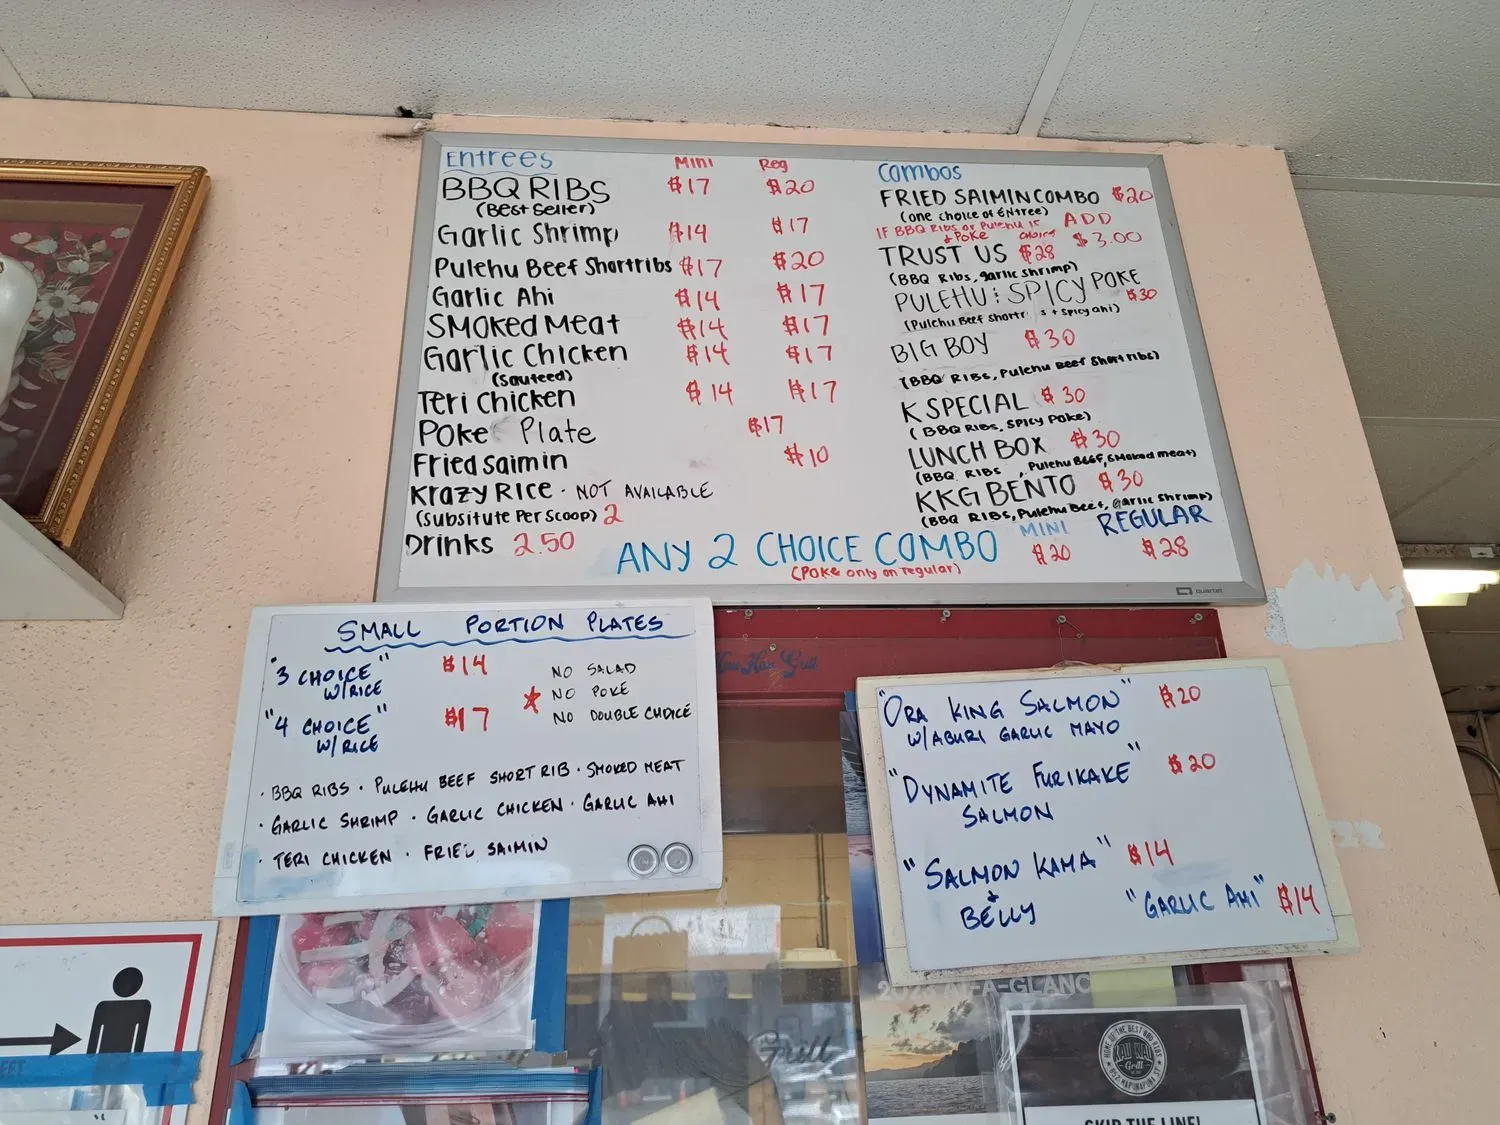 Entrees Mini Reg
BBQ RIBS $17 $20
(Best Seller)
Garlic Shrimp $14 $17
Pulehu Beef Shortribs $17 $20
Garlic Ahi $14 $17
Smoked Meat $14 $17
Garlic Chicken $14 $17
(Sauteed)
Teri Chicken $14 $17
Poke Plate $17
Fried Saimin $10
Krazy Rice · NOT AVAILABLE
(Subsitute Per Scoop) 2
Drinks 2.50
Combos
FRIED SAIMIN COMBO $20
(one choice of Entree)
IF BBQ Ribs or Pulehu IF ADD
& Poke choice $3.00
TRUST US $28
(BBQ Ribs, garlic shrimp)
PULEHU & SPICY POKE
$30
(Pulehu Beef Short s + Spicy ahi)
BIG BOY $30
(BBQ RIBS, Pulehu Beef Short ribs)
K SPECIAL $30
(BBQ RIBS, SPICY POKE)
LUNCH BOX $30
(BBQ RIBS , Pulehu BEEF, Smoked meat)
KKG BENTO $30
(BBQ RIBS, Pulehu Beef, Garlic Shrimp)
ANY 2 CHOICE COMBO MINI $20 REGULAR $28
(Poke only on regular)
quartet
SMALL PORTION PLATES
"3 CHOICE" $14
W/RICE
"4 CHOICE" $17
W/RICE
NO SALAD
NO POKE
NO DOUBLE CHOICE
· BBQ RIBS · PULEHU BEEF SHORT RIB · SMOKED MEAT
· GARLIC SHRIMP · GARLIC CHICKEN · GARLIC AHI
· TERI CHICKEN · FRIED SAIMIN
Kau Kau Grill
"ORA KING SALMON" $20
W/ABURI GARLIC MAYO
"DYNAMITE FURIKAKE" $20
SALMON
"SALMON KAMA" $14
& BELLY
"GARLIC AHI" $14
AT-A-GLANC
Grill
HOME OF THE BEST BBQ RIBS
KAU KAU
Grill
957 MAPUNAPUNA ST
SKIP THE LINE!